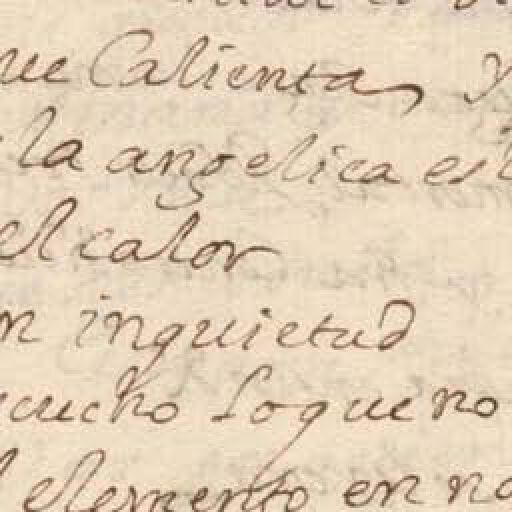 ue Calienta, y
la angelica es
el calor
n inquietud
cucho loque no
elemento en no